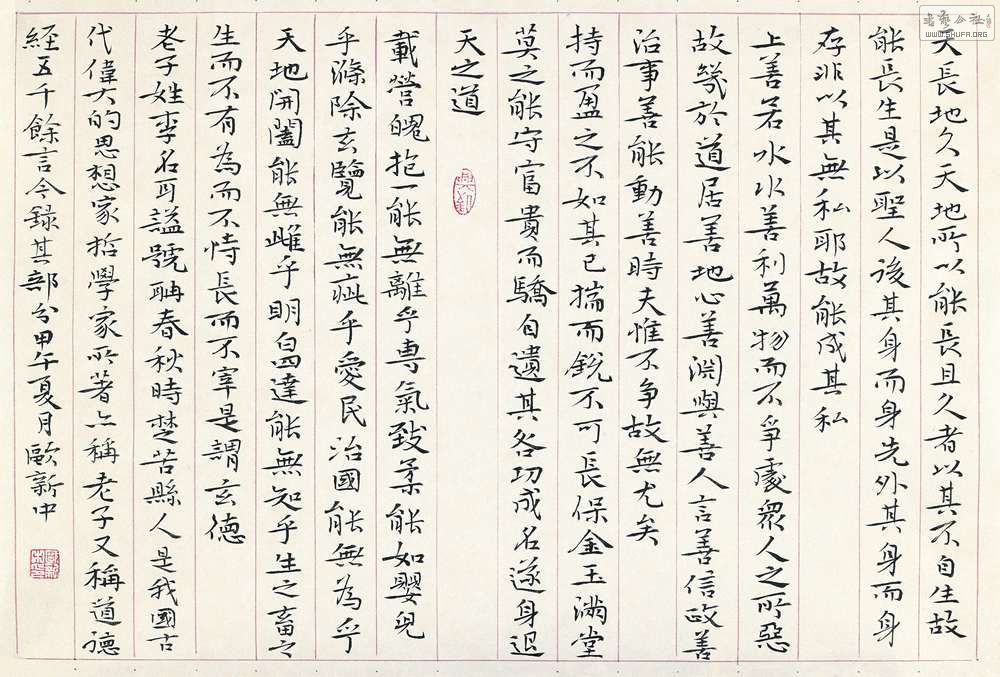 天長地久天地所以能長且久者以其不自生故
能長生是以聖人後其身而身先外其身而身
存非以其無私耶故能成其私
上善若水水善利萬物而不爭處衆人之所惡
故幾於道居善地心善淵與善人言善信政善
治事善能動善時夫惟不爭故無尤矣
持而盈之不如其已揣而銳不可長保金玉滿堂
莫之能守富貴而驕自遺其咎功成名遂身退
天之道
載營魄抱一能無離乎專氣致柔能如嬰兒
乎滌除玄覽能無疵乎愛民治國能無為乎
天地開闔能無雌乎明白四達能無知乎生之畜之
生而不有為而不恃長而不宰是謂玄德
老子姓李名耳謚號聃春秋時楚苦縣人是我國古
代偉大的思想家哲學家所著亦稱老子又稱道德
經五千餘言今錄其部分甲午夏月歐新中
書藝公社
WWW.SHUFA.ORG